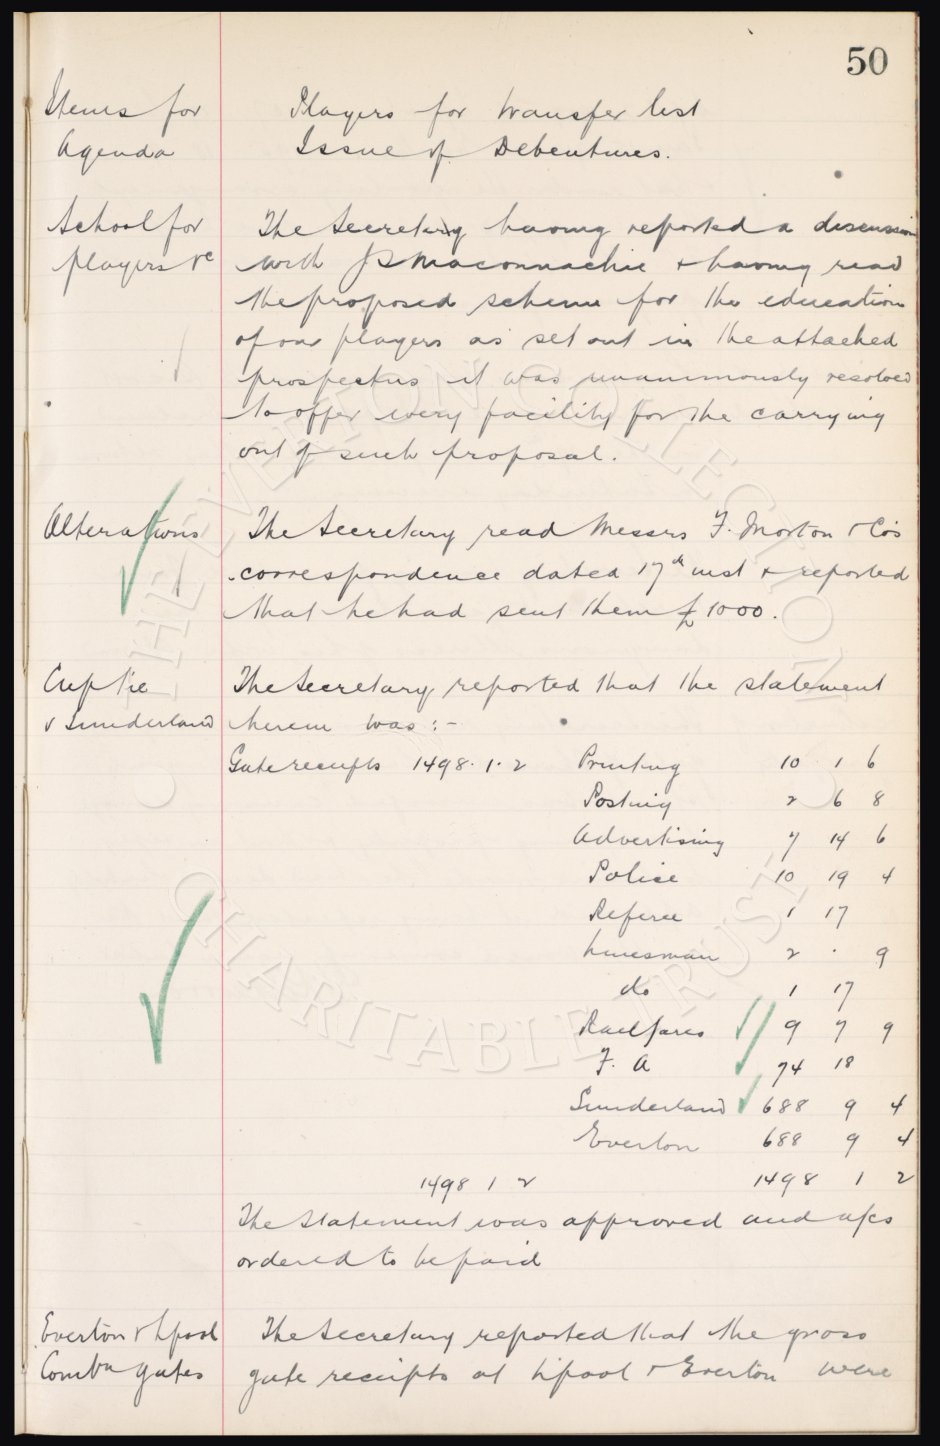 50
Items for Players for transfer list
Agenda Issue of Debentures.
School for The Secretary having reported a discussion
players &c with J S Maconnachie & having read
the proposed scheme for the education
of our players as set out in the attached
prospectus it was unanimously resolved
to offer every facility for the carrying
out of such proposal.
Alterations The Secretary read Messrs F. Morton & Co's
correspondence dated 17th inst & reported
that he had sent them £1000.
Cup tie The Secretary reported that the statement
v Sunderland herein was:-
Gate receipts 1498.1.2 Printing 10 1 6
Posting 2 6 8
Advertising 7 14 6
Police 10 19 4
Referee 1 17
Linesman 2 . 9
do 1 17
Railfares 9 7 9
F. A 74 18
Sunderland 688 9 4
Everton 688 9 4
1498 1 2 1498 1 2
The statement was approved and a/cs
ordered to be paid
Everton v Lpool The Secretary reported that the gross
Combn gates gate receipts at Lpool & Everton were
THE EVERTON COLLECTION
CHARITABLE TRUST